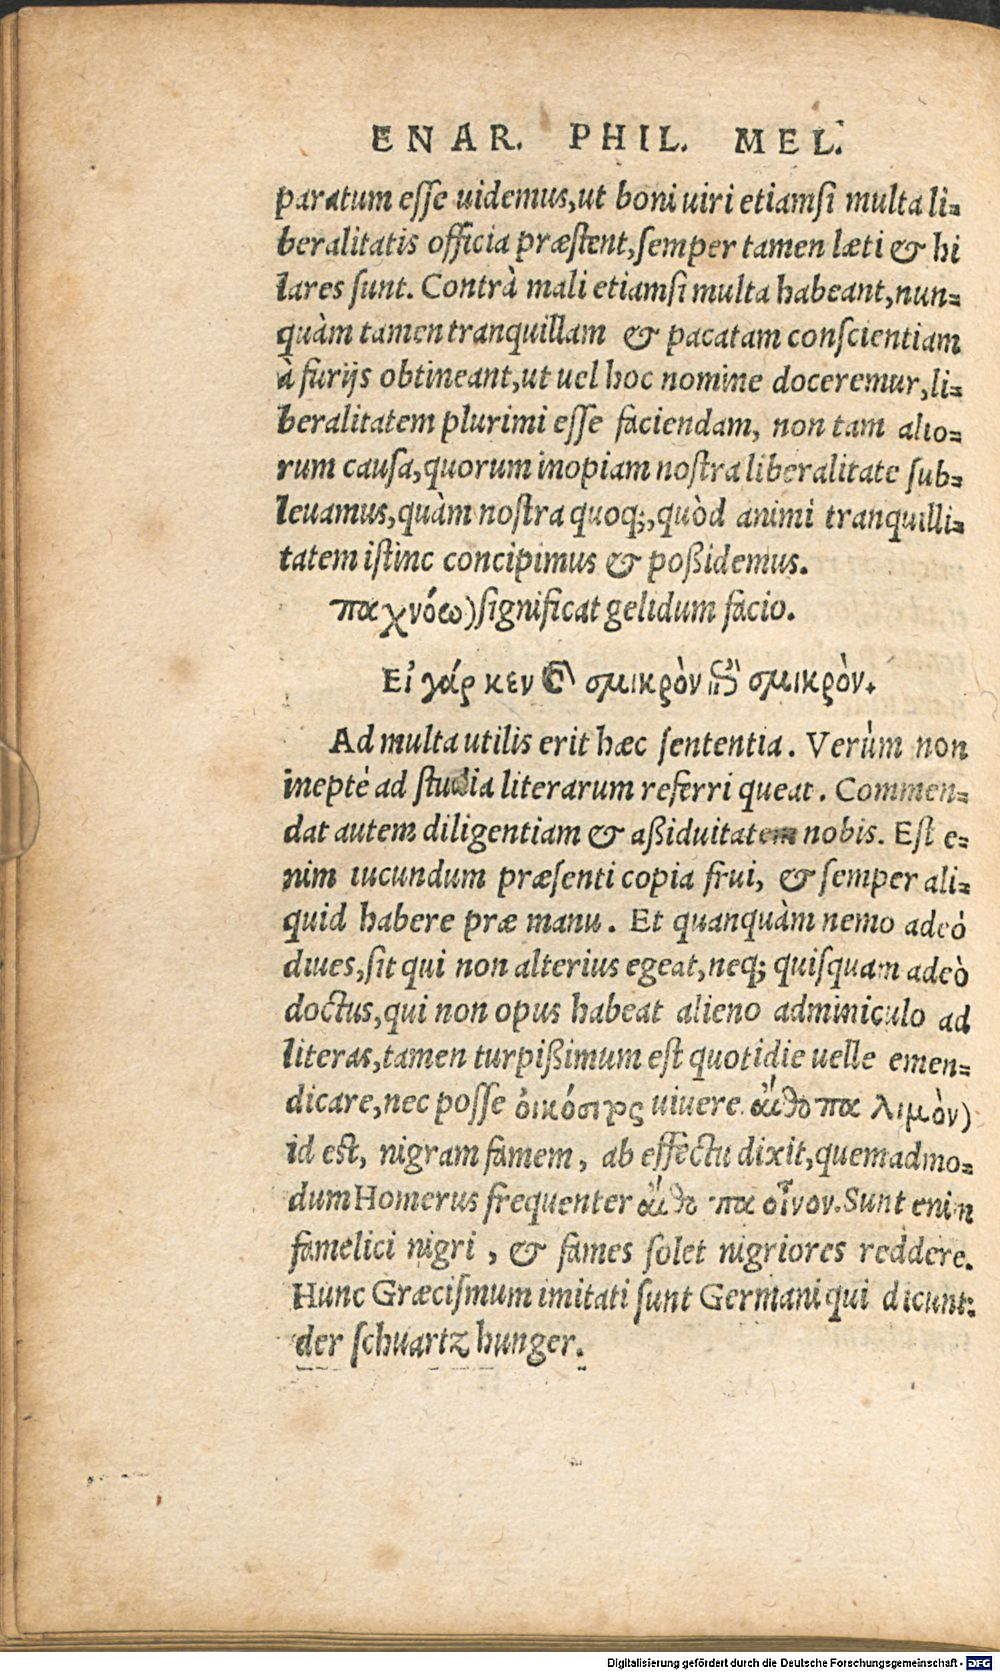 ENAR. PHIL. MEL.
paratum esse uidemus, ut boni uiri etiamsi multa li=
beralitatis officia præstent, semper tamen læti & hi
lares sunt. Contrà mali etiamsi multa habeant, nun=
quàm tamen tranquillam & pacatam conscientiam
à furijs obtineant, ut uel hoc nomine doceremur, li=
beralitatem plurimi esse faciendam, non tam alio=
rum causa, quorum inopiam nostra liberalitate sub=
leuamus, quàm nostra quoq;, quòd animi tranquilli=
tatem istinc concipimus & poßidemus.
παχνόω) significat gelidum facio.
Εἰ γάρ κεν καὶ σμικρὸν ἐπὶ σμικρὸν.
Ad multa utilis erit hæc sententia. Verùm non
ineptè ad studia literarum referri queat. Commen=
dat autem diligentiam & aßiduitatem nobis. Est e=
nim iucundum præsenti copia frui, & semper ali=
quid habere præ manu. Et quanquàm nemo adeò
diues, sit qui non alterius egeat, neq; quisquam adeò
doctus, qui non opus habeat alieno adminiculo ad
literas, tamen turpißimum est quotidie uelle emen=
dicare, nec posse οἰκόσιτος uiuere. αἴθοπα λιμὸν)
id est, nigram famem, ab effectu dixit, quemadmo=
dum Homerus frequenter αἴθοπα οἶνον. Sunt enim
famelici nigri, & fames solet nigriores reddere.
Hunc Græcismum imitati sunt Germani qui dicunt:
der schuartz hunger.
Digitalisierung gefördert durch die Deutsche Forschungsgemeinschaft - DFG